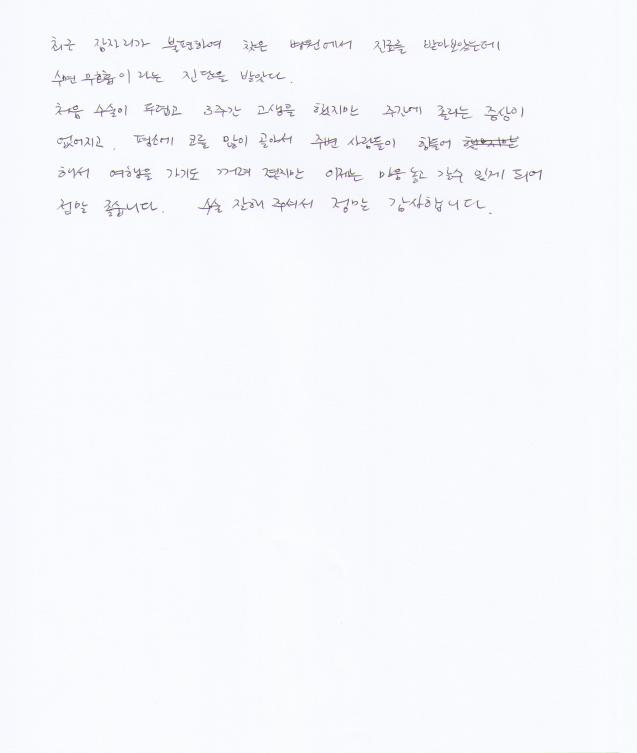 최근 잠자리가 불편하여 찾은 병원에서 진료를 받아보았는데
수면 무호흡이라는 진단을 받았다.
처음 수술이 두렵고 3주간 고생을 했지만 주간에 졸리는 증상이
없어지고, 평소에 코를 많이 골아서 주변 사람들이 힘들어
해서 여행을 가기도 꺼려 졌지만 이제는 마음 놓고 갈수 있게 되어
정말 좋습니다. 수술 잘해 주셔서 정말 감사합니다.